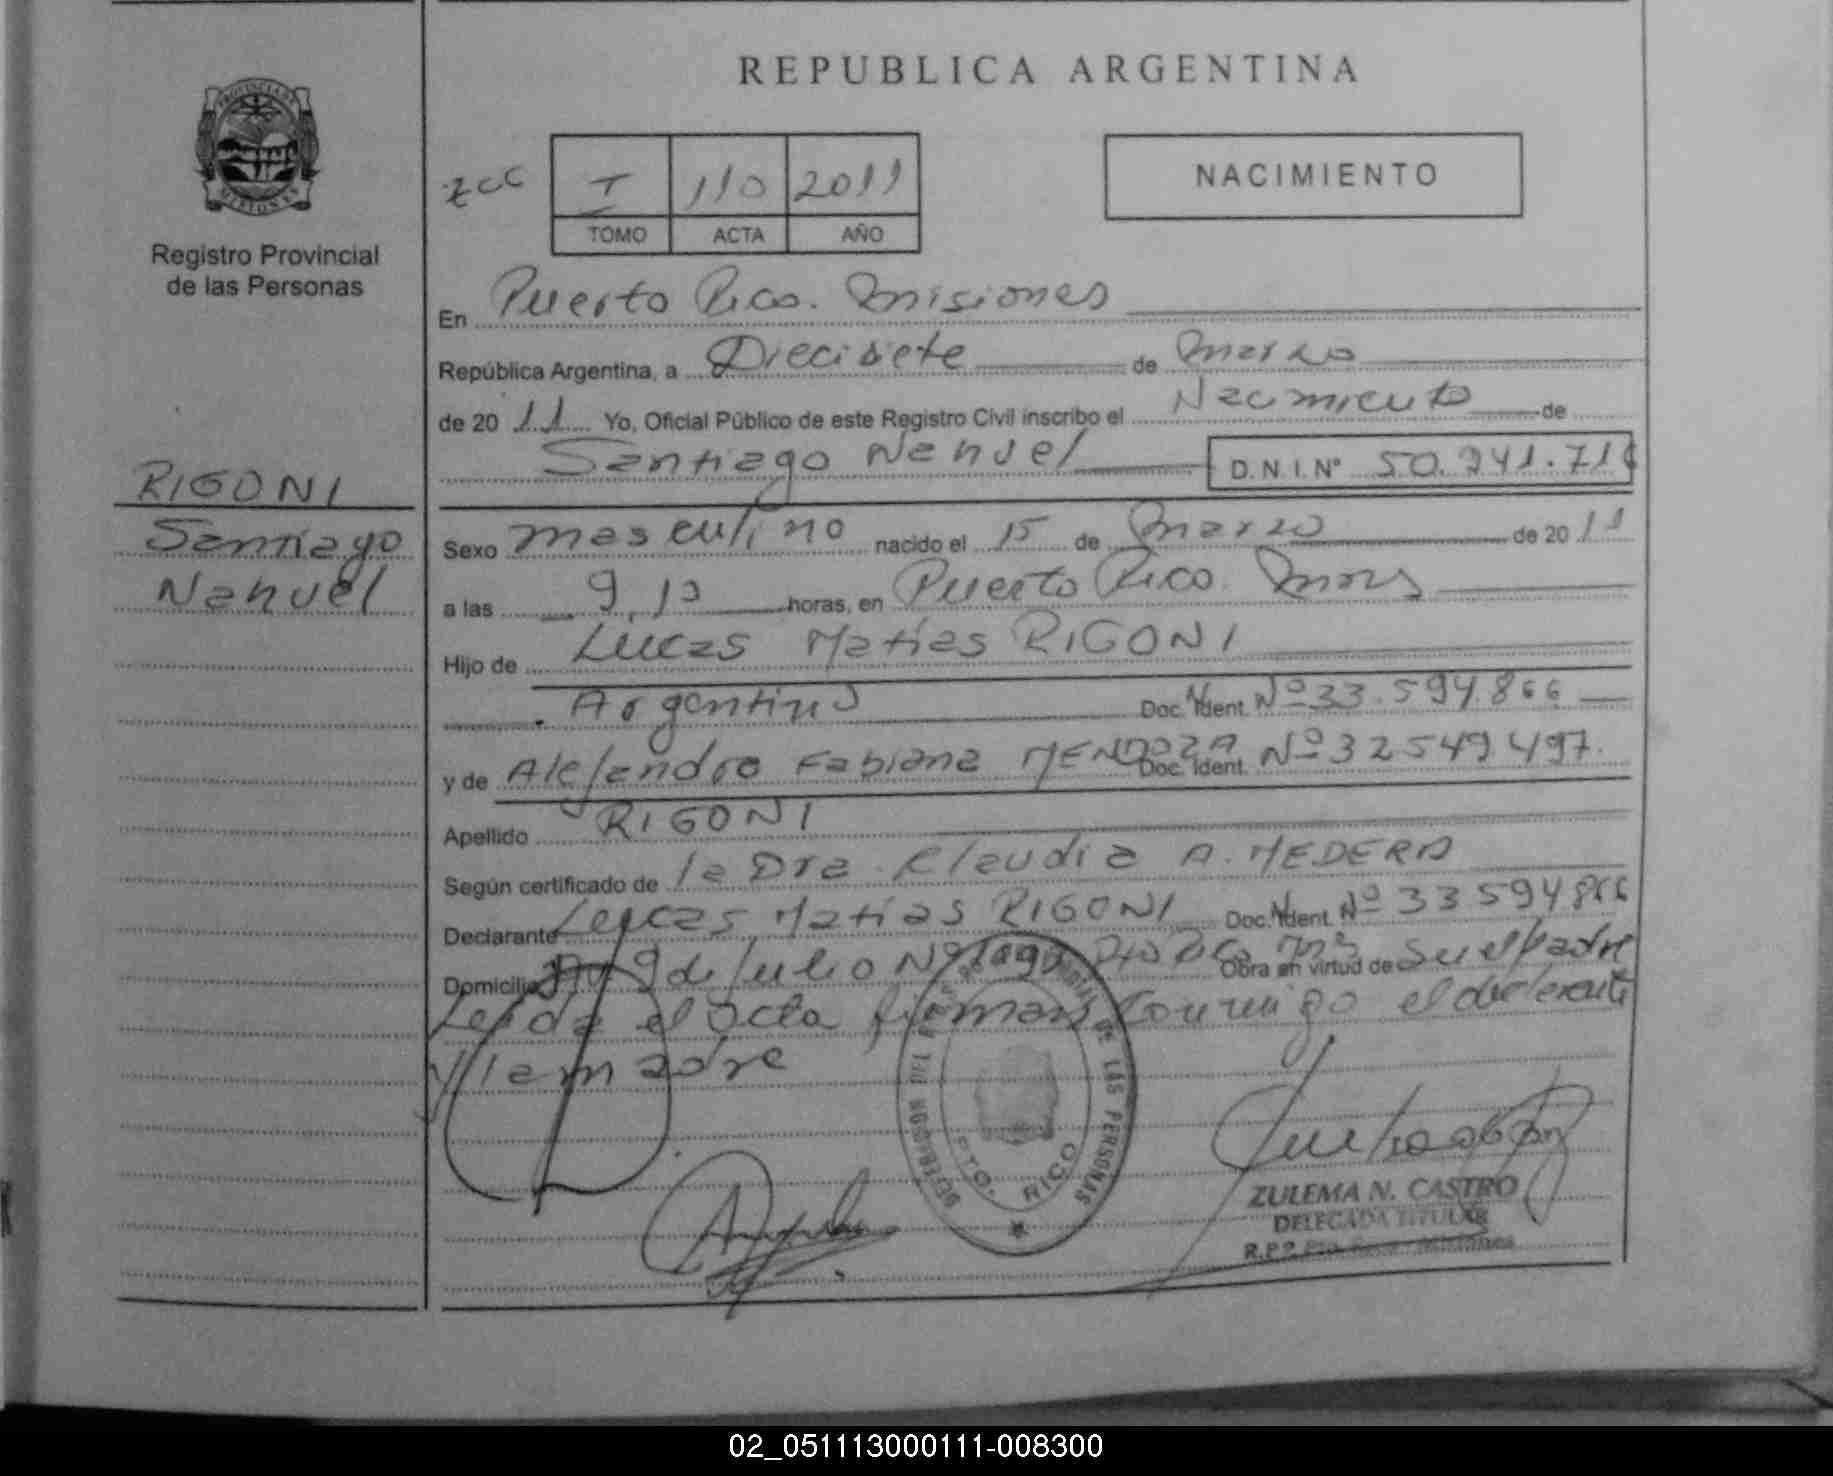 REPUBLICA ARGENTINA
Registro Provincial
de las Personas
I 110 2011
TOMO ACTA AÑO
NACIMIENTO
En Puerto Rico. Misiones
República Argentina, a Diecisiete de Marzo
de 20 11 Yo, Oficial Público de este Registro Civil inscribo el Nacimiento de
Santiago Nahuel D.N.I.Nº 50.241.71
RIGONI
Santiago
Nahuel
Sexo masculino nacido el 15 de Marzo de 20 11
a las 9,10 horas, en Puerto Rico. Mnes
Hijo de Lucas Matias RIGONI
Argentino Doc. Ident. Nº 33.594.866
y de Alejandra Fabiana MENDOZA Doc. Ident. Nº 32549497.
Apellido RIGONI
Según certificado de la Dra. Claudia A. MEDERA
Declarante Lucas Matias RIGONI Doc. Ident. Nº 33594866
Domicilio Av. 9 de Julio Nº Obra en virtud de ser el padre
Leída el acta firman conmigo el declarante
y la madre
DEL REGISTRO DE LAS PERSONAS
PTO. RICO
ZULEMA N. CASTRO
DELEGADA TITULAR
R.P.P. Pto. Rico - Misiones
02_051113000111-008300